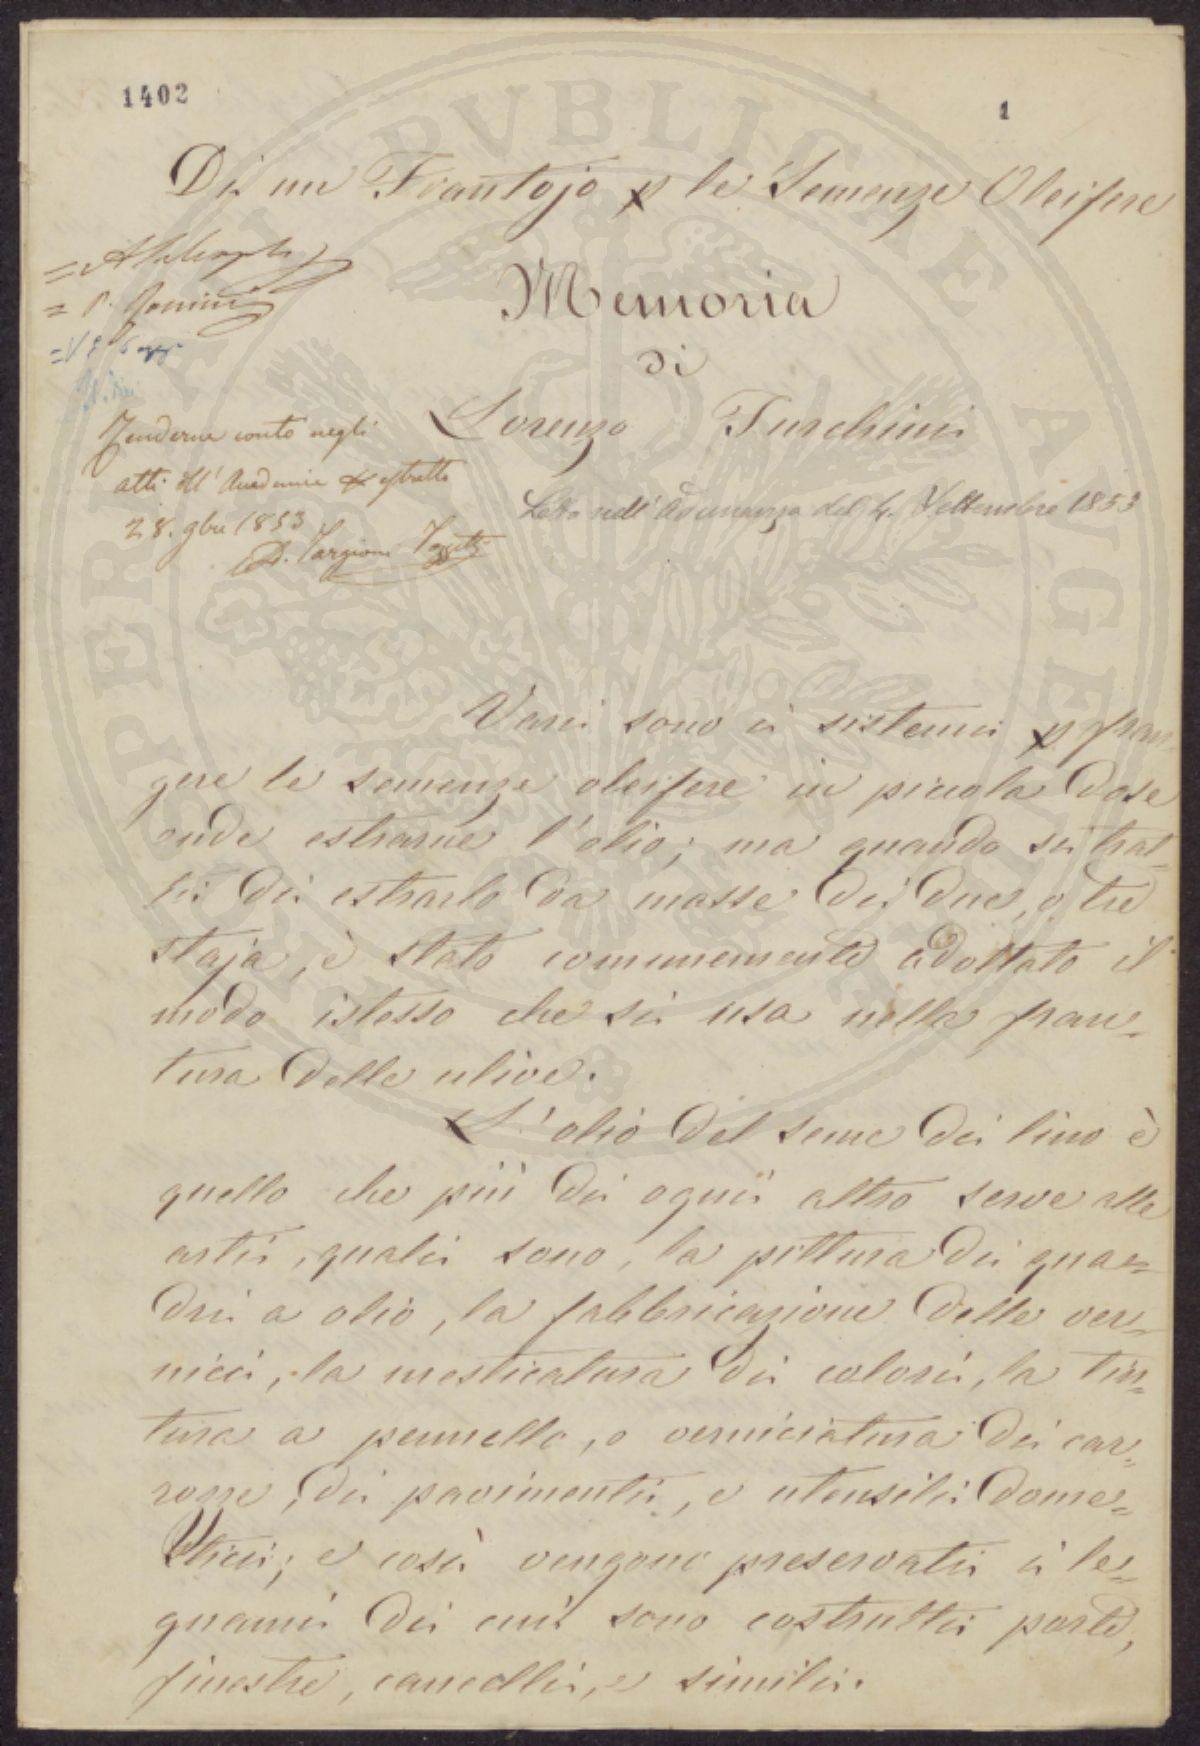 1402
1
Di un Frantojo p le Semenze Oleifere
Memoria
di
Lorenzo Turchini
Letto nell'Adunanza del 4. Settembre 1853
Renderne conto negli
atti dell'Accademia p estratto
28. 9bre 1853
A. Targioni Tozzetti
Varii sono i sistemi p fran-
gere le semenze oleifere in piccola dose
onde estrarne l'olio; ma quando si trat-
ti di estrarlo da masse di due, o tre
staja, è stato comunemente adottato il
modo istesso che si usa nella fran-
tura delle ulive.
L'olio del seme di lino è
quello che più di ogni altro serve alle
arti, quali sono, la pittura di qua-
dri a olio, la fabbricazione delle ver-
nici, la mesticatura di colori, la tin-
tura a pennello, o verniciatura di car-
rozze, di pavimenti, e utensili dome-
stici; e così vengono preservati i le-
gnami di cui sono costrutti porte,
finestre, cancelli, e simili.
PVBLICAE